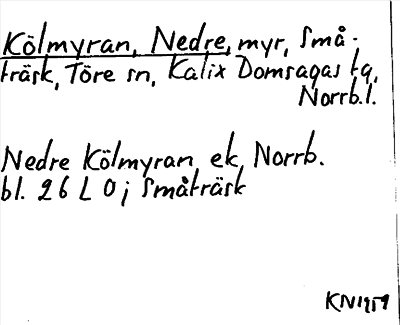 Kölmyran, Nedre, myr, Små-
träsk, Töre sn, Kalix Domsagas tg,
Norrb.l.
Nedre Kölmyran ek, Norrb.
bl. 26 L 0 j Småträsk
KN1959